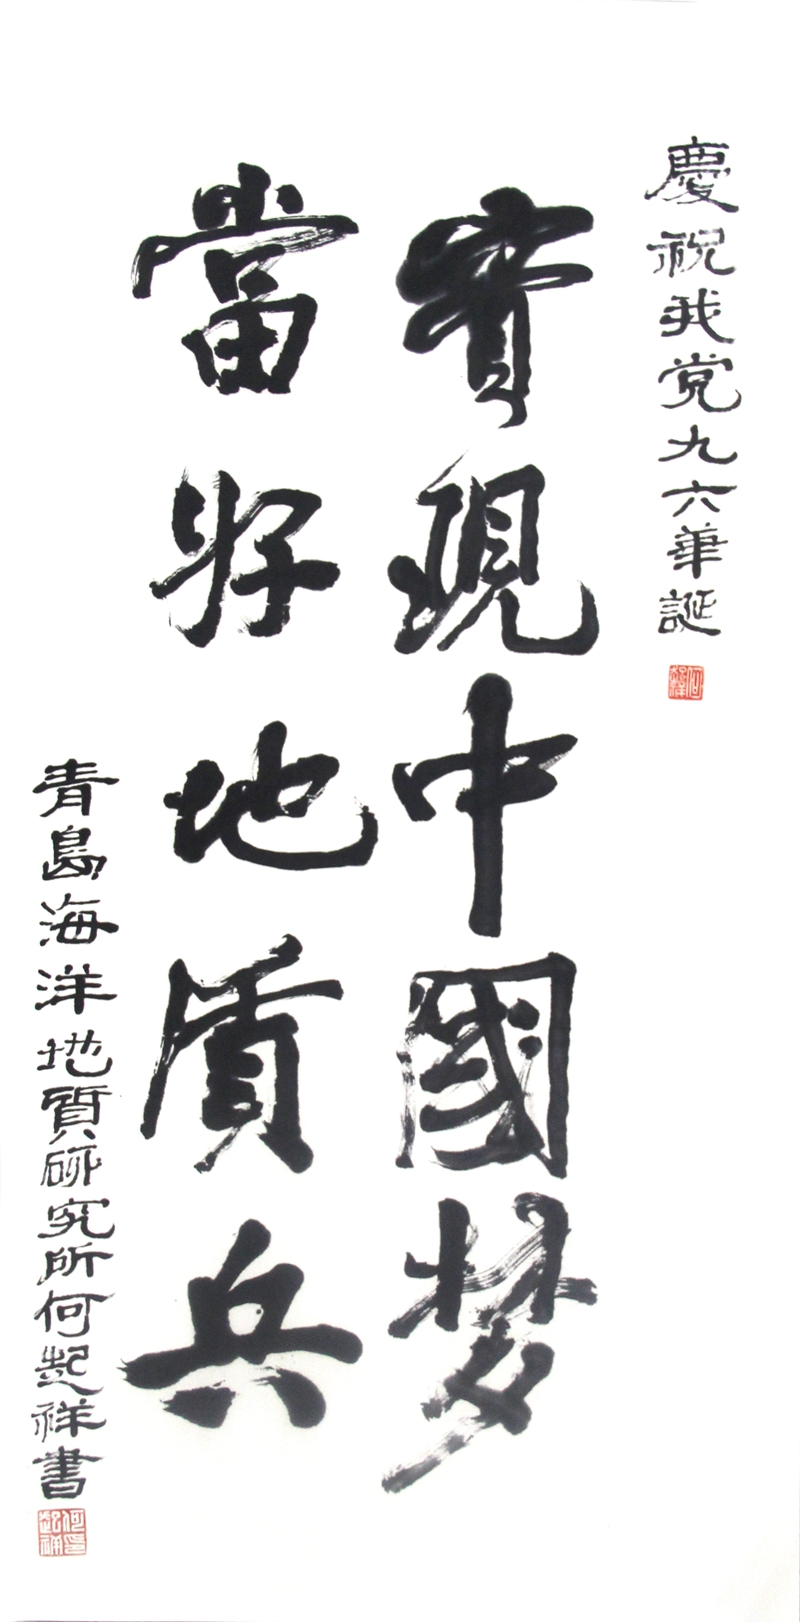 慶祝我党九六華誕
實現中國梦
當好地质兵
青島海洋地質研究所何起祥書